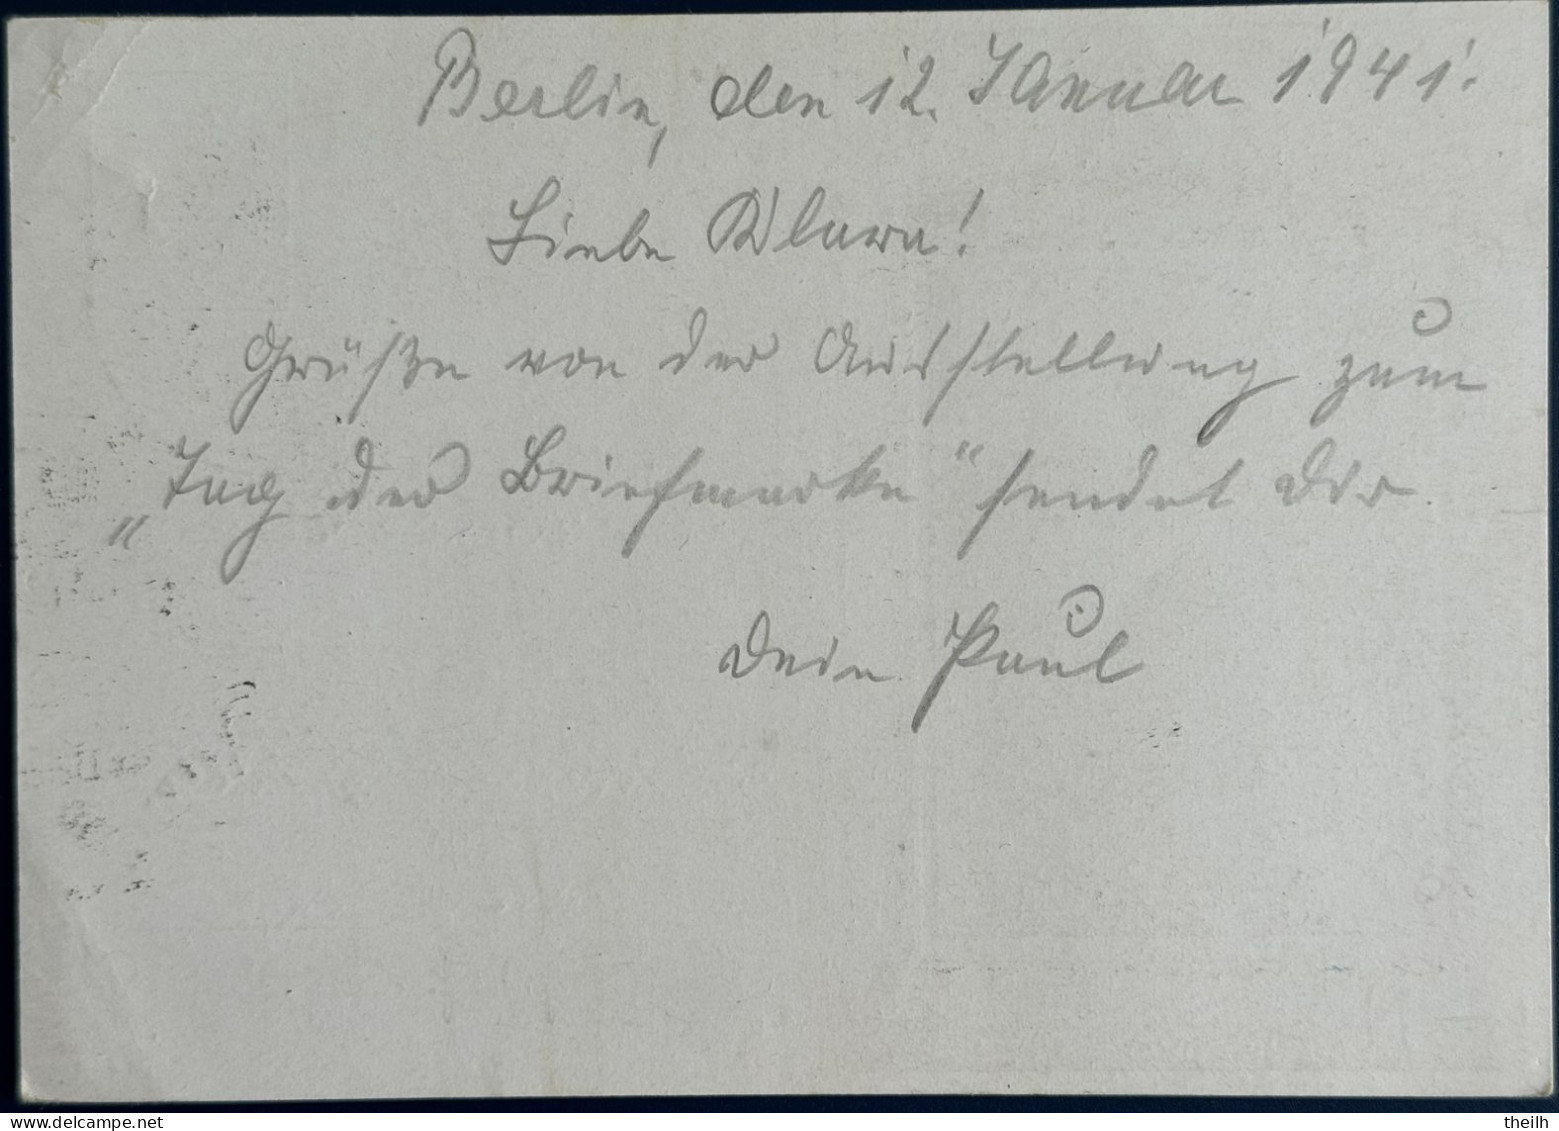 Berlin, den 12. Januar 1941.
Liebe Klara!
Grüße von der Ausstellung zum
„Tag der Briefmarke“ sendet Dir
Dein Paul
delcampe.net
theilh